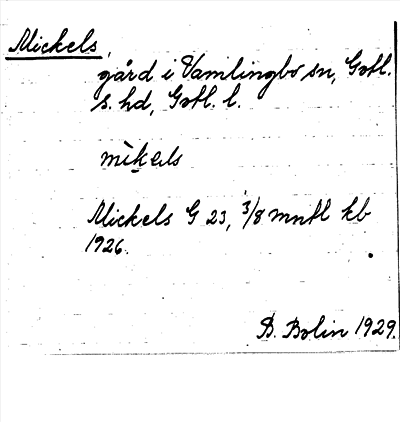 Mickels,
gård i Vamlingbo sn, Gotl.
s. hd, Gotl. l.
mìkels
Mickels G 23, 3/8 mntl kb
1926.
B. Bolin 1929.